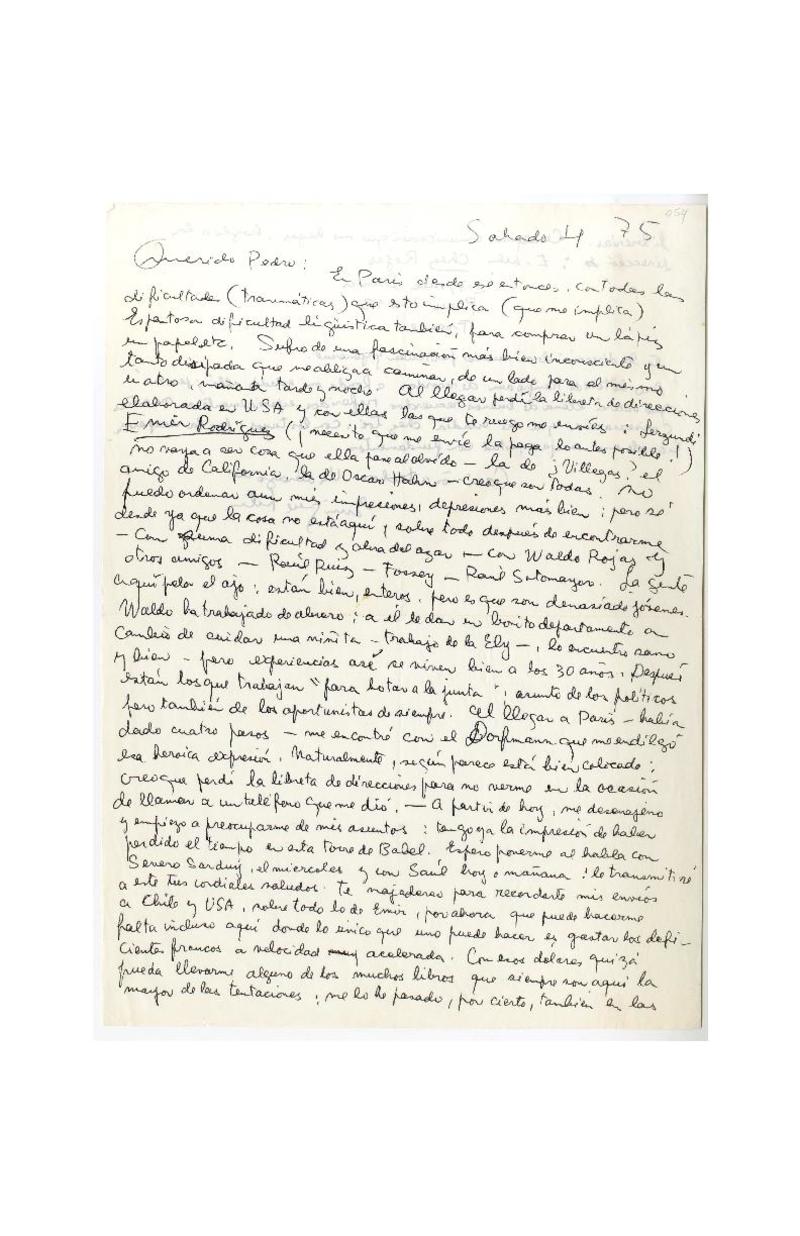 054
Sabado 4 75
Querido Pedro:
En París desde ese entonces, con todas las
dificultades (traumáticas) que esto implica (que me implica)
Espantosa dificultad lingüística también, para comprar un lápiz
un papel etc. Sufro de una fascinación más bien inconsciente y un
tanto disipada que me obliga a caminar, de un lado para al mismo
u otro, mañana tarde y noche. Al llegar perdí la libreta de direcciones
elaborada en USA y con ellas las que te ruego me envíes:
Emir Rodríguez (¡necesito que me envíe la paga lo antes posible!)
no vaya a ser cosa que ella pase al olvido – la de ¿Villegas? el
amigo de California, la de Oscar Hahn – creo que son todas. No
puedo ordenar aun mis impresiones, depresiones más bien; pero sé
desde ya que la cosa no está aquí y sobre todo después de encontrarme
– con suma dificultad y obra del azar – con Waldo Rojas y
otros amigos – Raúl Ruiz – Fossey – Raúl Sotomayor. La gente
aquí pelan el ajo: están bien, enteros, pero es que son demasiado jóvenes.
Waldo ha trabajado de obrero; a él le dan un bonito departamento a
cambio de cuidar una niñita – trabajo de la Ely –, lo encuentro sano
y bien – pero experiencias así se viven bien a los 30 años. Después
están los que trabajan "para botar a la junta", asunto de los políticos
pero también de los oportunistas de siempre. Al llegar a París – había
dado cuatro pasos – me encontré con el Dorfmann que me endilgó
esa heroica expresión. Naturalmente, según parece está bien colocado;
creo que perdí la libreta de direcciones para no verme en la ocasión
de llamar a un teléfono que me dió. – A partir de hoy, me desenajeno
y empiezo a preocuparme de mis asuntos: tengo ya la impresión de haber
perdido el tiempo en esta torre de Babel. Espero ponerme al habla con
Severo Sarduy, el miercoles y con Saúl hoy o mañana: le transmitiré
a este tus cordiales saludos. Te majadereo para recordarte mis envíos
a Chile y USA, sobre todo lo de Emir, por ahora que puede hacerme
falta incluso aquí donde lo único que uno puede hacer es gastar los defi-
cientes francos a velocidad muy acelerada. Con esos dolares quizá
pueda llevarme alguno de los muchos libros que siempre son aquí la
mayor de las tentaciones; me lo he pasado, por cierto, también en las